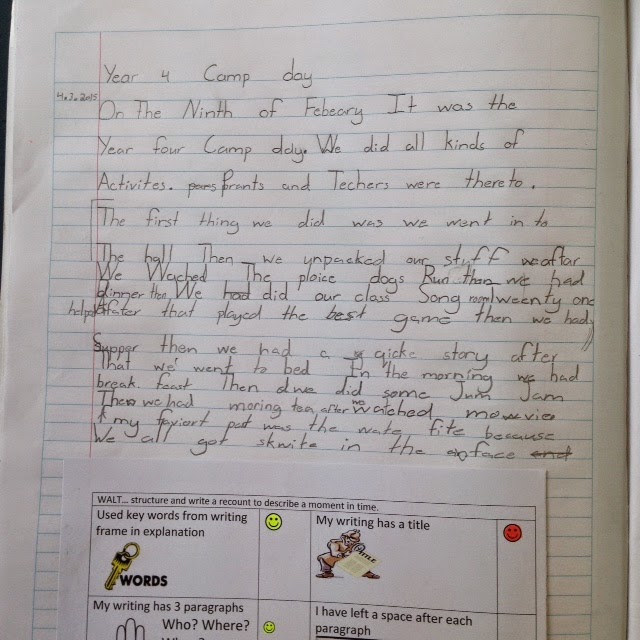 Year 4 Camp day
4.3.2015
On The Ninth of Febeary It was the
Year four Camp day. We did all kinds of
Activites. Prants and Techers were thereto.
The first thing we did was we went in to
The hall Then we unpacked our stuff after
We Wached The ploice dogs Run then we had
dinner then We had did our class Song room tweenty one
Afater that played the best game then we had
Supper then we had a qicke story after
That we went to bed In the morning we had
break feast Then we did some Jum Jam
Then we had moring tea after we Watched movie
my faviort pat was the wate fite because
We all got skwite in the face and
WALT... structure and write a recount to describe a moment in time.
Used key words from writing
frame in explanation
WORDS
My writing has a title
My writing has 3 paragraphs
Who? Where?
I have left a space after each
paragraph